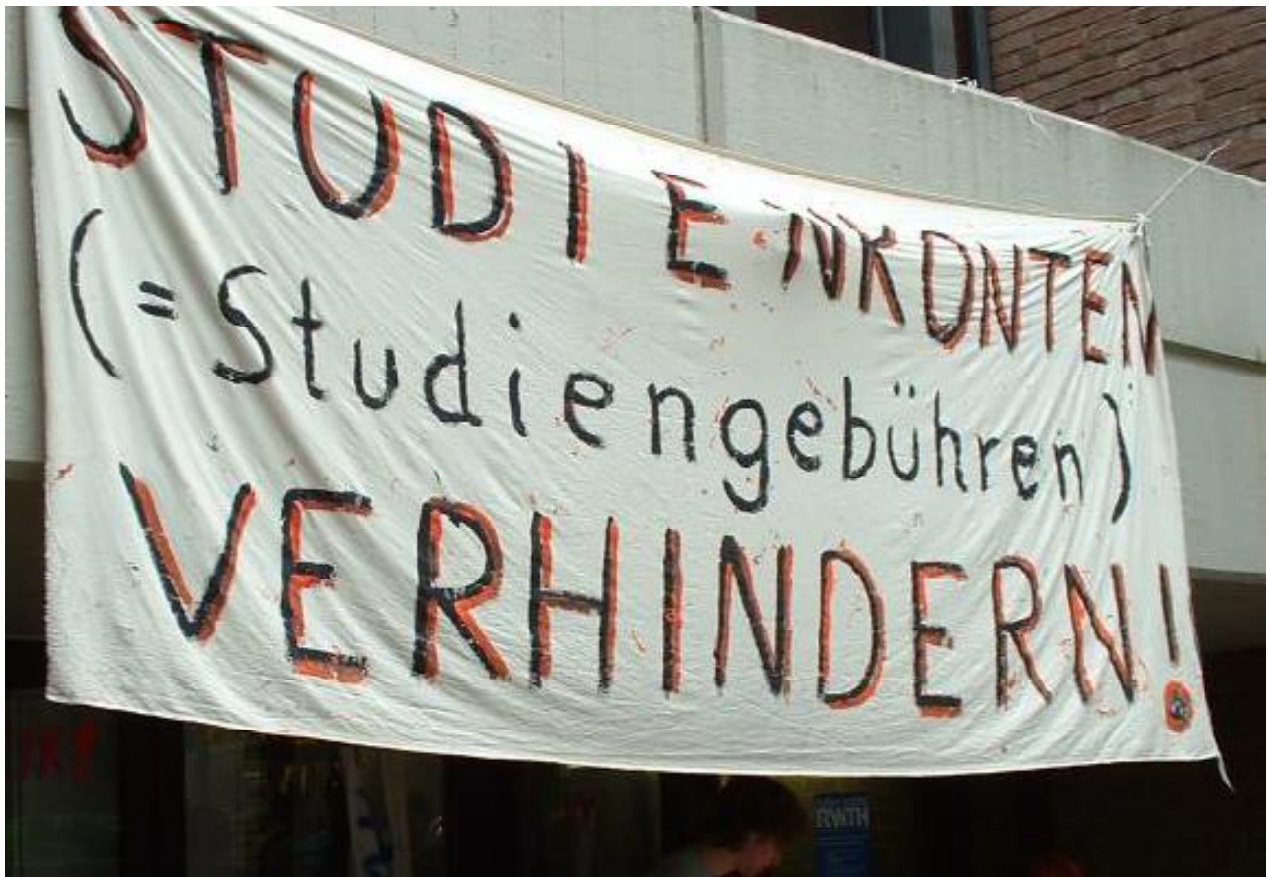 STUDIENKONTEN
(=Studiengebühren)
VERHINDERN!
RWTH